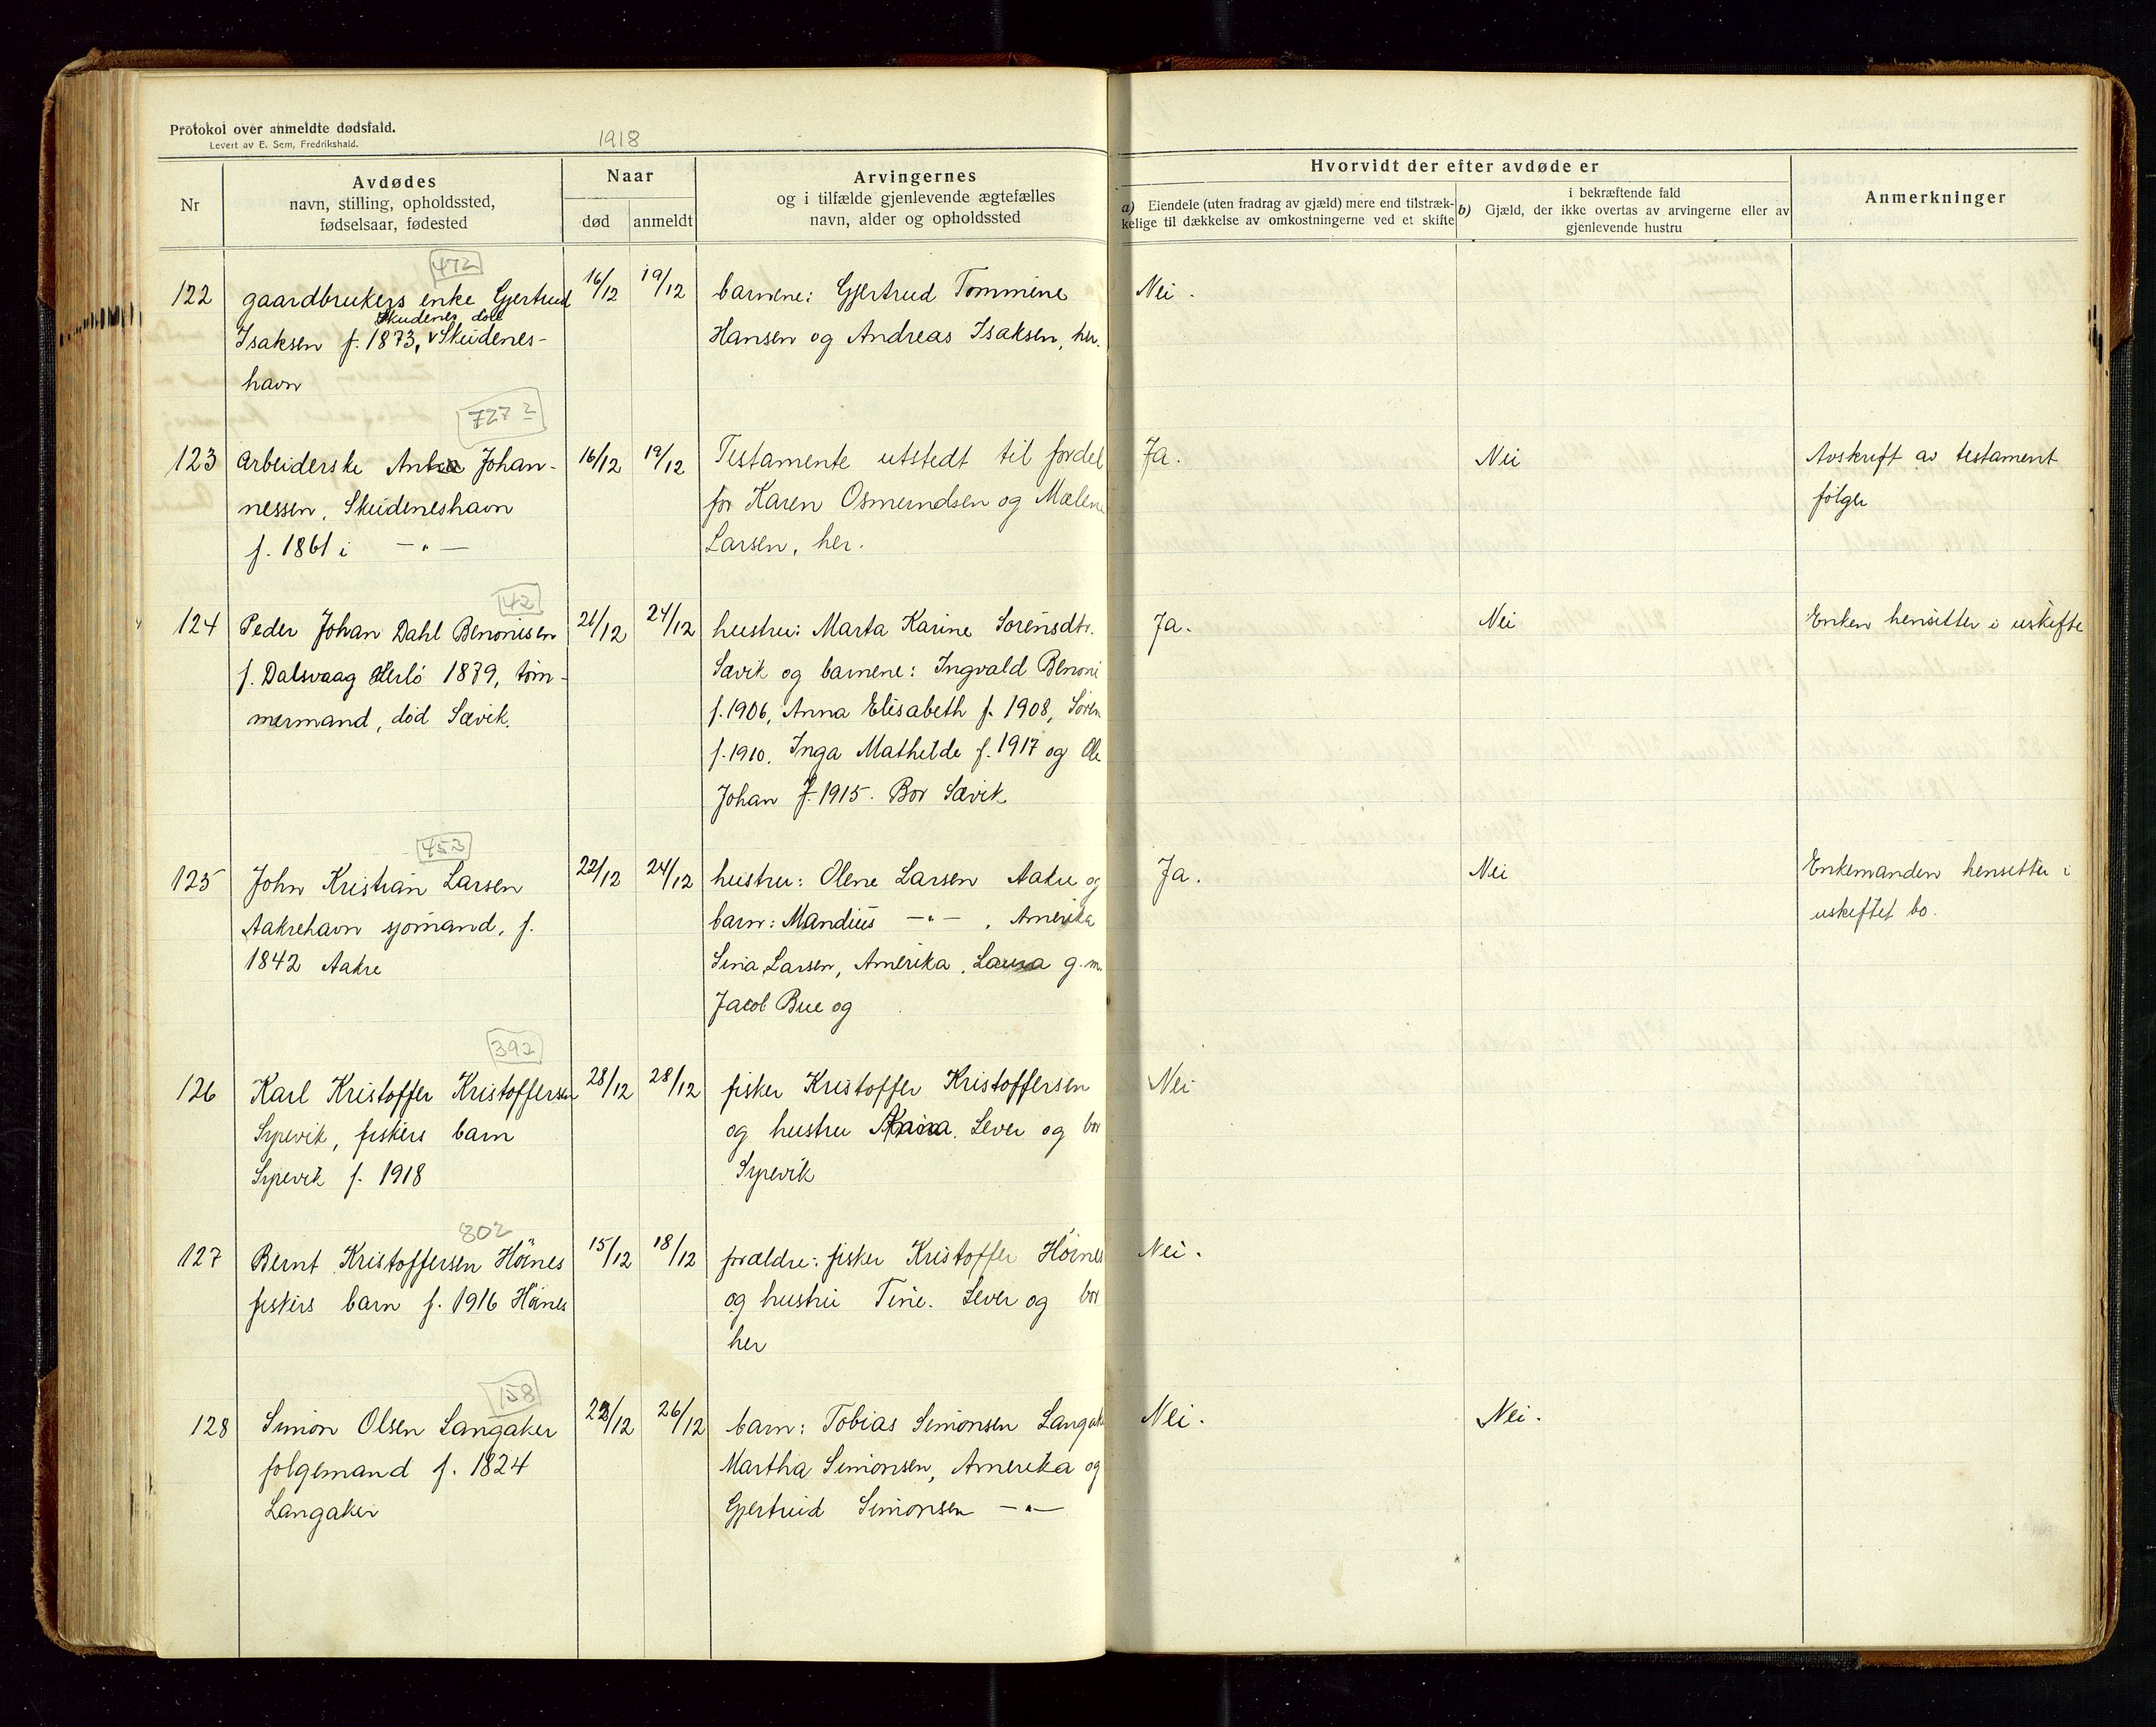 Protokol over anmeldte dødsfald.
Levert av E. Sem, Fredrikshald.
1918
Nr
Avdødes
navn, stilling, opholdssted,
fødselsaar, fødested
Naar
død
anmeldt
Arvingernes
og i tilfælde gjenlevende ægtefælles
navn, alder og opholdssted
Hvorvidt der efter avdøde er
a) Eiendele (uten fradrag av gjæld) mere end tilstræk-
kelige til dækkelse av omkostningerne ved et skifte
i bekræftende fald
b) Gjæld, der ikke overtas av arvingerne eller av
gjenlevende hustru
Anmerkninger
472
122 gaardbrukers enke Gjertrud 16/12 19/12 barnene: Gjertrud Tommine Nei.
Skudenes død
Isaksen f. 1873, Skudenes- Hansen og Andreas Isaksen, her.
havn
727 2
123 Arbeiderske Johan- 16/12 19/12 Testamente utstedt til fordel Ja. Nei Avskrift av testament
nessen, Skudeneshavn for Karen Osmundsen og Malene følger
f. 1861 i —"— Larsen, her.
42
124 Peder Johan Dahl Benonisen 21/12 24/12 hustru: Marta Karine Sørensdtr. Ja. Nei Enken hensitter i uskifte
f. Dalsvaag Herlö 1879, töm- Sævik og barnene: Ingvald Benoni
mermand, död Sævik. f. 1906, Anna Elisabeth f. 1908, Sören
f. 1910, Inga Mathilde f. 1917 og Ole
Johan f. 1915. Bor Sævik
453
125 John Kristian Larsen 22/12 24/12 hustru: Olene Larsen Aakre og Ja. Nei Enkemanden hensitter i
Aakrehavn sjömand, f. barn: Mandius —"—, Amerika uskiftet bo.
1842 Aakre Sina Larsen, Amerika, Laura g. m.
Jacob Bue og
392
126 Karl Kristoffer Kristoffersen 28/12 28/12 fisker Kristoffer Kristoffersen Nei
Sypevik, fiskers barn og hustru Lever og bor
Sypevik f. 1918 Sypevik
802
127 Bernt Kristoffersen Höines 15/12 18/12 forældre: fisker Kristoffer Höines Nei.
fiskers barn f. 1916 Höines og hustru Tine. Lever og bor
her
158
128 Simon Olsen Langaker 23/12 26/12 barn: Tobias Simonsen Langak Nei. Nei.
folgemand f. 1824 Martha Simonsen, Amerika og
Langaker Gjertrud Simonsen —"—